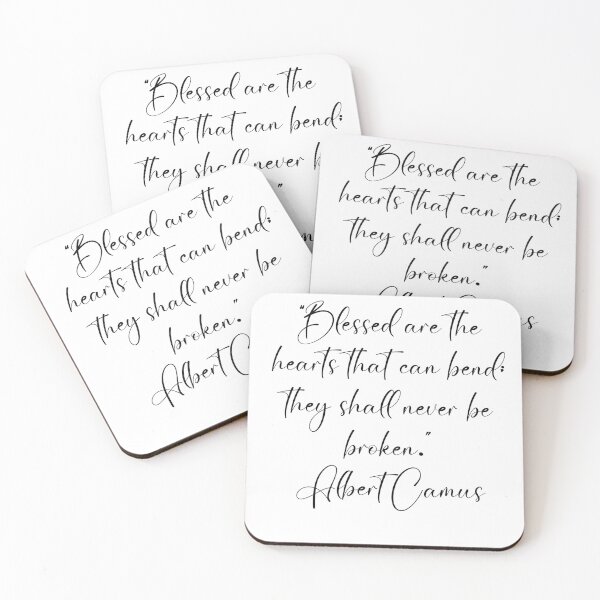 “Blessed are the
hearts that can bend;
they shall never
“Blessed are the
hearts that can bend;
they shall never be
broken.”
Albert Camus
“Blessed are the
hearts that can bend;
they shall never be
broken.”
Albert
“Blessed are the
hearts that can bend;
they shall never be
broken.”
Albert Camus